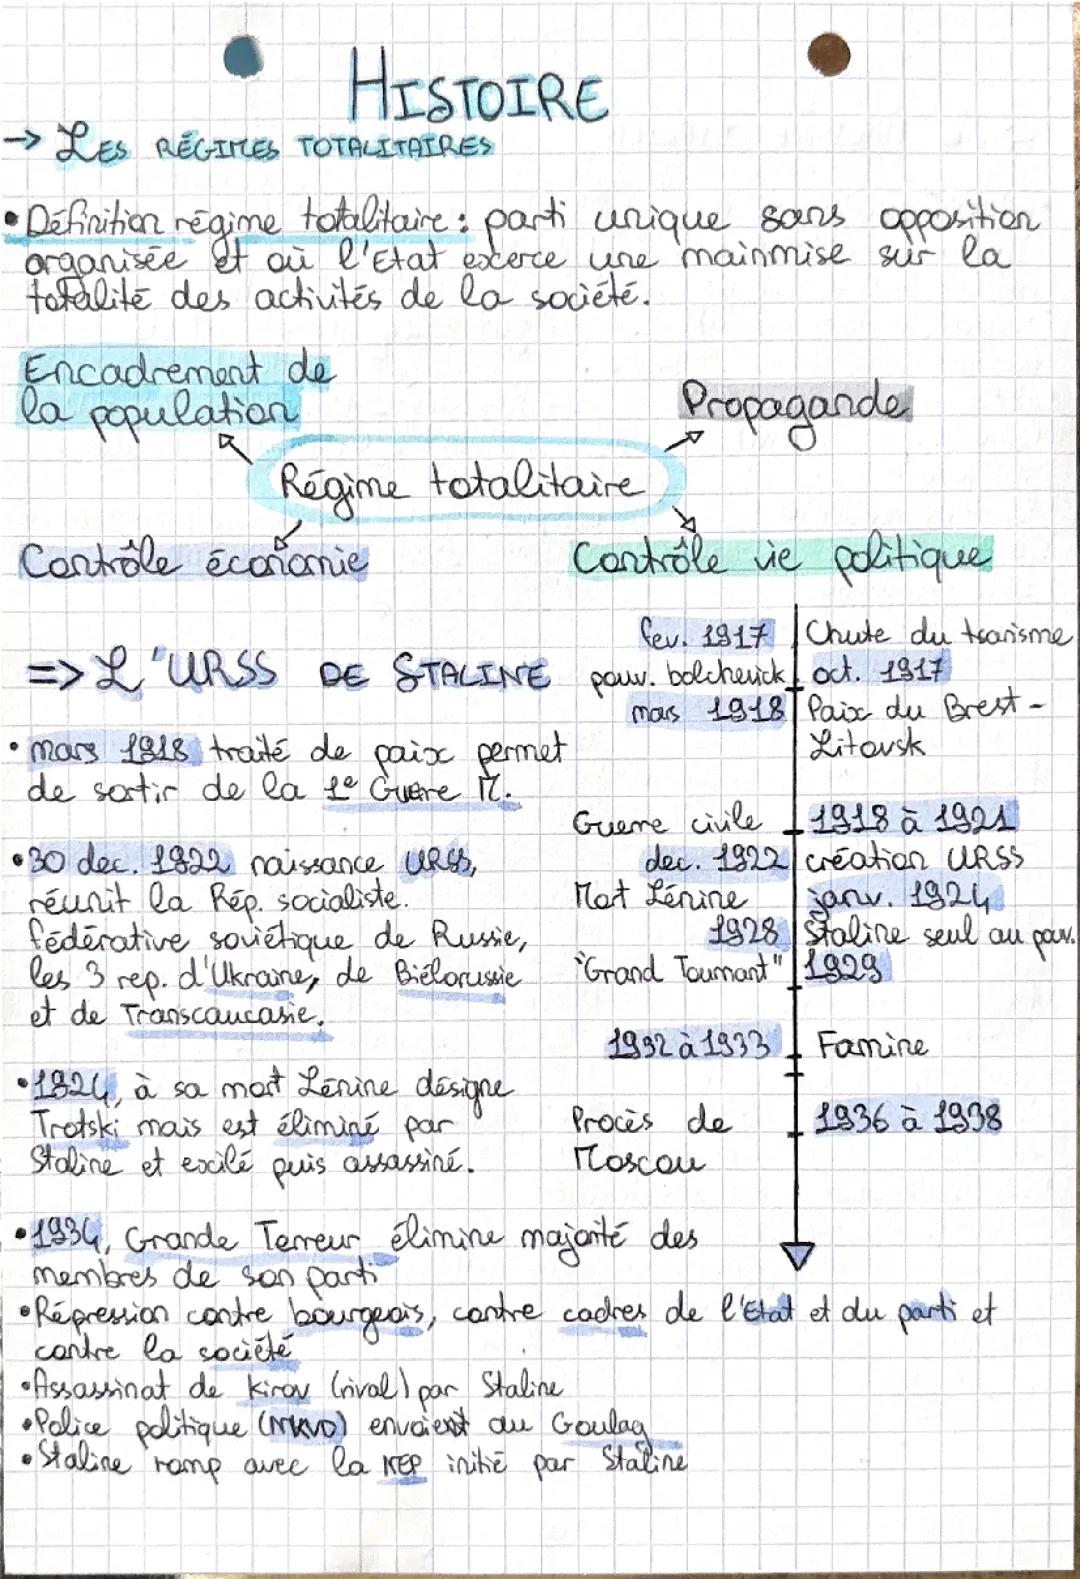 HISTOIRE
→ LES RÉGIMES TOTALITAIRES
• Définition régime totalitaire : parti unique sans opposition
organisée et où l'Etat exerce une mainmise sur la
totalité des activités de la société.
Encadrement de
la population
Propagande
Régime totalitaire
Contrôle économie
Contrôle vie politique
=> L'URSS DE STALINE
• mars 1918 traité de paix permet
de sortir de la 1e Guerre M.
• 30 dec. 1922 naissance URSS,
réunit la Rép. socialiste.
fédérative soviétique de Russie,
les 3 rep. d'Ukraine, de Biélorussie
et de Transcaucasie.
• 1924, à sa mort Lénine désigne
Trotski mais est éliminé par
Staline et exilé puis assassiné.
fev. 1917 Chute du tsarisme
pouv. bolchevick oct. 1917
mars 1918 Paix du Brest-
Litovsk
Guerre civile 1918 à 1921
dec. 1922 création URSS
Mort Lénine janv. 1924
1928 Staline seul au pouv.
"Grand Tournant" 1929
1932 à 1933 Famine
Procès de 1936 à 1938
Moscou
• 1934, Grande Terreur élimine majorité des
membres de son parti
• Répression contre bourgeois, contre cadres de l'Etat et du parti et
contre la société
• Assassinat de Kirov (rival) par Staline
• Police politique (NKVD) envoient au Goulag
• Staline romp avec la NEP initié par Staline